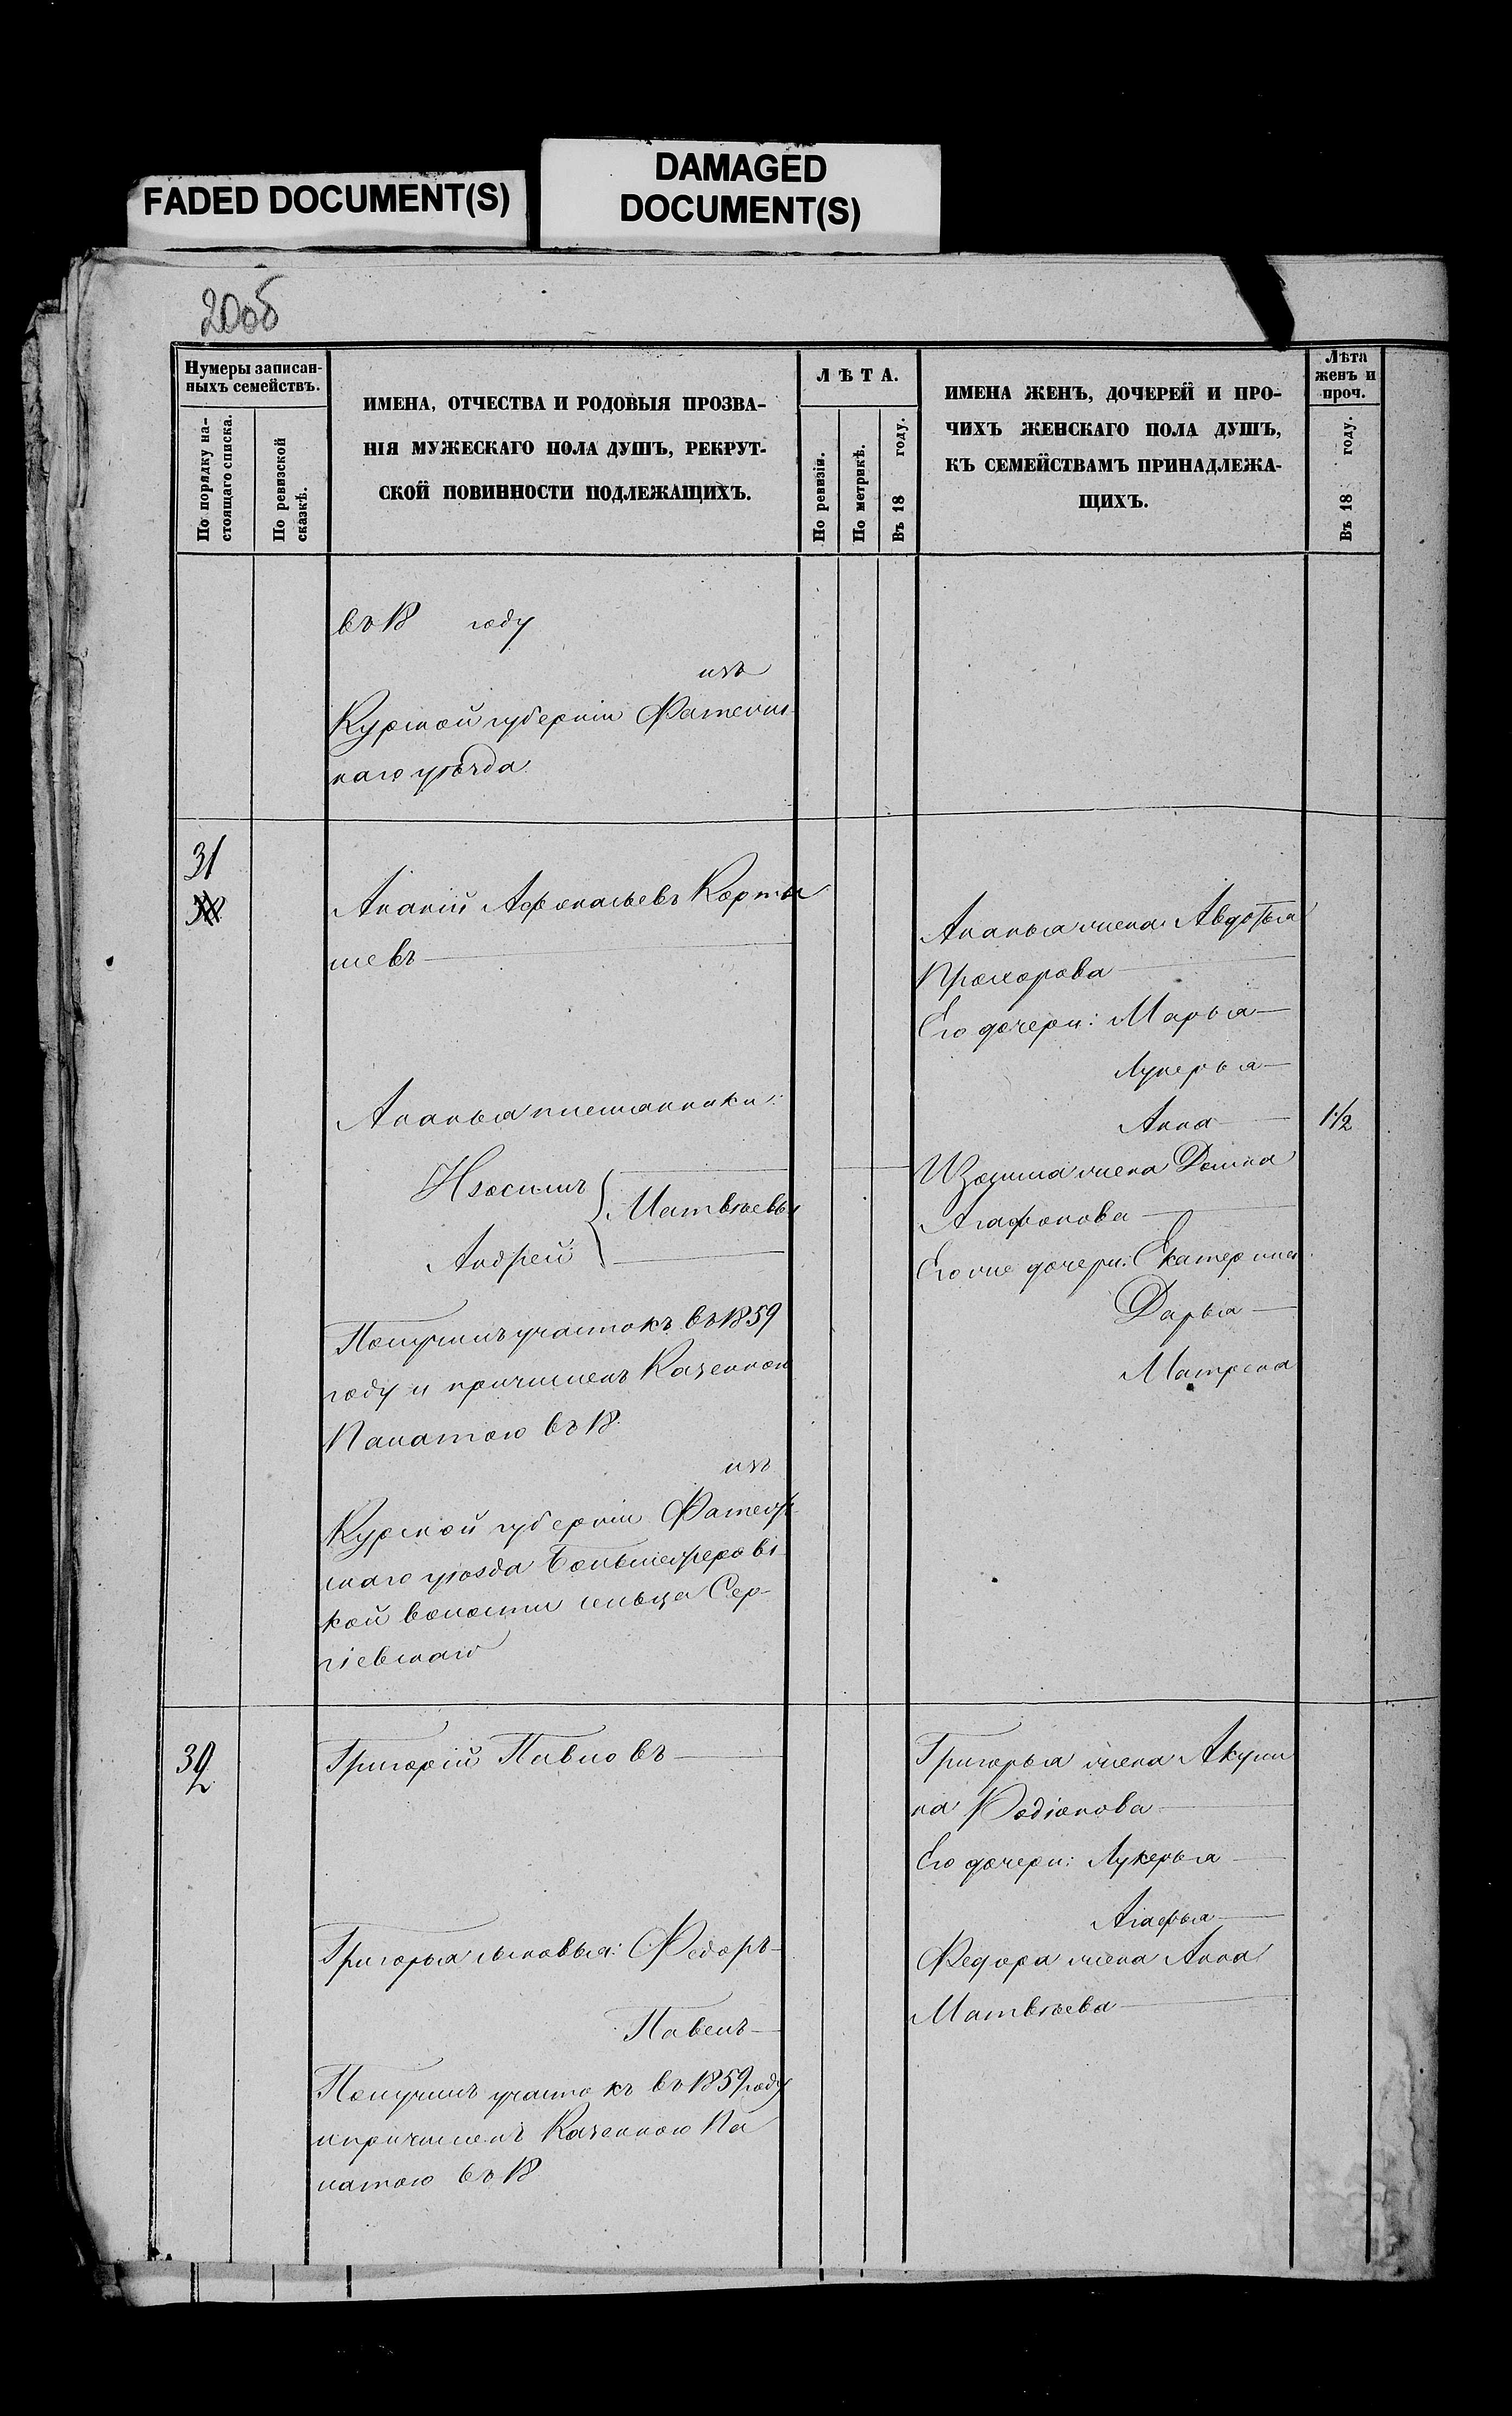 FADED DOCUMENT(S)
DAMAGED
DOCUMENT(S)
20об
Нумеры записан-
ныхъ семействъ.
По порядку на-
стоящаго списка.
По ревизской
сказкѣ.
ИМЕНА, ОТЧЕСТВА И РОДОВЫЯ ПРОЗВА-
НІЯ МУЖЕСКАГО ПОЛА ДУШЪ, РЕКРУТ-
СКОЙ ПОВИННОСТИ ПОДЛЕЖАЩИХЪ.
ЛѢТА.
По ревизіи.
По метрикѣ.
Въ 18 году.
ИМЕНА ЖЕНЪ, ДОЧЕРЕЙ И ПРО-
ЧИХЪ ЖЕНСКАГО ПОЛА ДУШЪ,
КЪ СЕМЕЙСТВАМЪ ПРИНАДЛЕЖА-
ЩИХЪ.
Лѣта
женъ и
проч.
Въ 18 году.
въ 18 году
изъ
Курской губерніи Фатежс-
каго уѣзда
31
Ананій Афонасьевъ Корты
шевъ
Ананья племянники:
Изосимъ
Матвѣевы
Андрей
Получилъ участокъ въ 1859
году и причисленъ Казенною
Палатою въ 18
изъ
Курской губерніи Фатеж-
скаго уѣзда
кой волости сельца Сер-
гіевскаго
Ананья жена Авдотья
Прохорова
Его дочери: Марья
Лукерья
Анна
1 1/2
Изосима жена Домна
Агафонова
Его же дочери: Екатерина
Дарья
Матрена
32
Григорій Павловъ
Григорья сыновья: Федоръ
Павелъ
Получилъ участокъ въ 1859 году
и причисленъ Казенною Па
латою въ 18
Григорья жена Акули
на Родіонова
Его дочери: Лукерья
Агафья
Федора жена Анна
Матвѣева